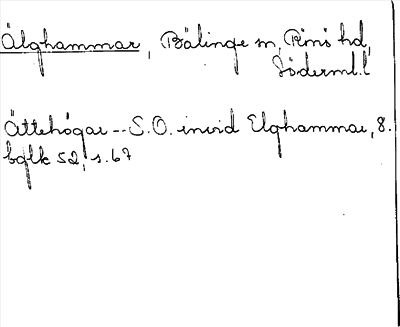 Älghammar, Bälinge sn, Rönö hd,
Söderml. l
Ättehögar -- S.O. invid Elghammar, 8.
bglk 52, s. 67